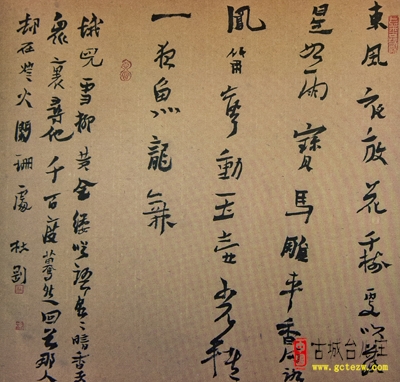 東風夜放花千樹更吹落
星如雨寶馬雕車香滿路
鳳簫聲動玉壺光轉
一夜魚龍舞
蛾兒雪柳黃金縷笑語盈盈暗香去
眾裏尋他千百度驀然回首那人
却在燈火闌珊處 秋劉
古城台
www.gctezw.com